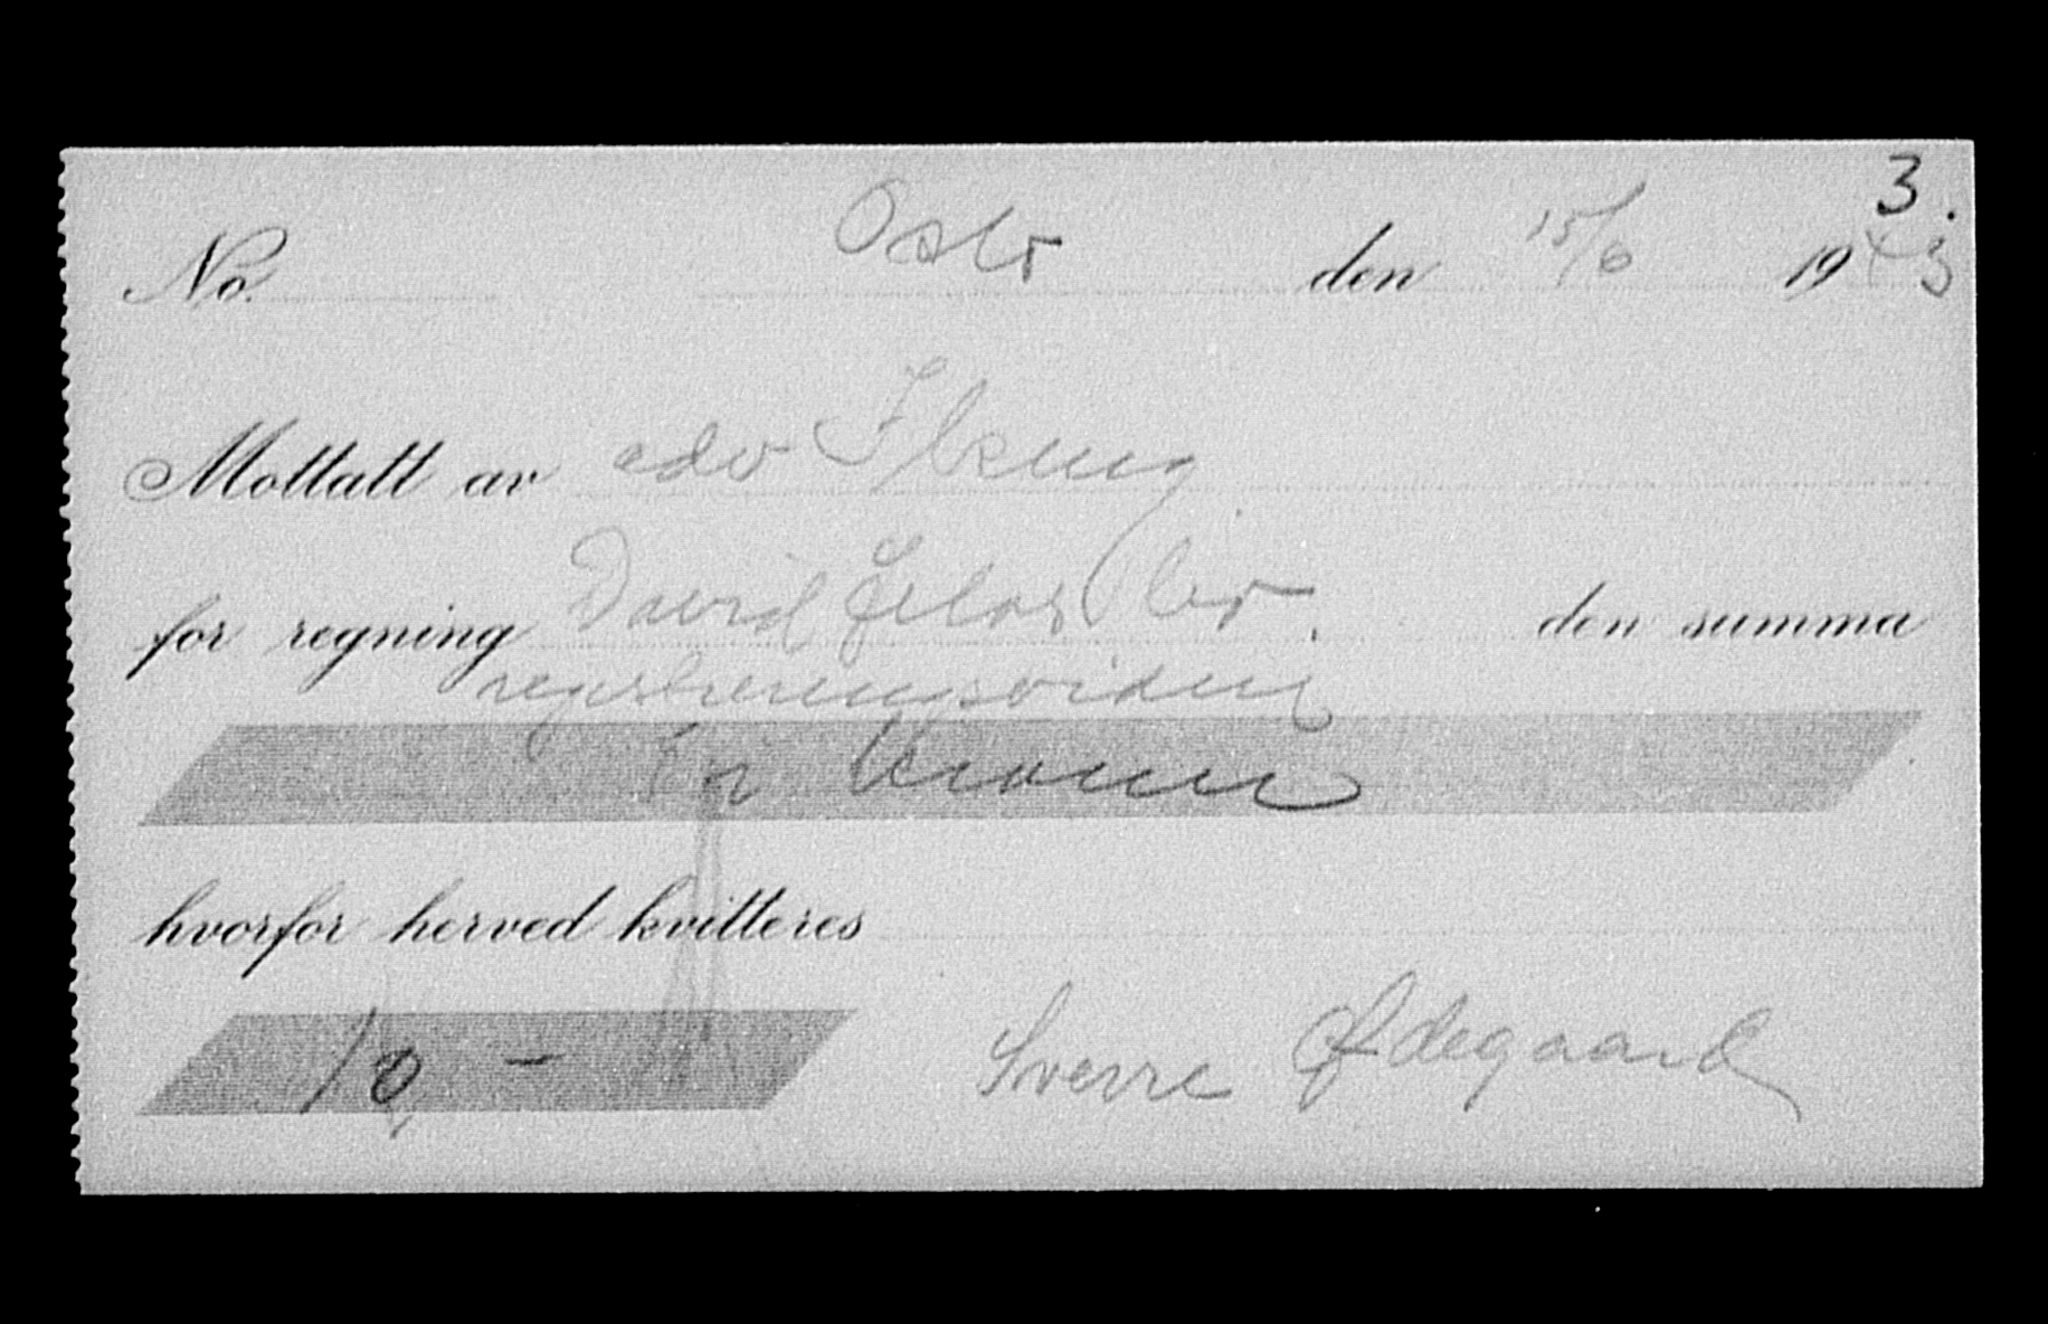 3.
No. Oslo den 15/6 1943
Mottatt av adv
for regning David bo. den summa
registreringsvidne
Ti kroner
hvorfor herved kvitteres
10 – Sverre Ødegaard